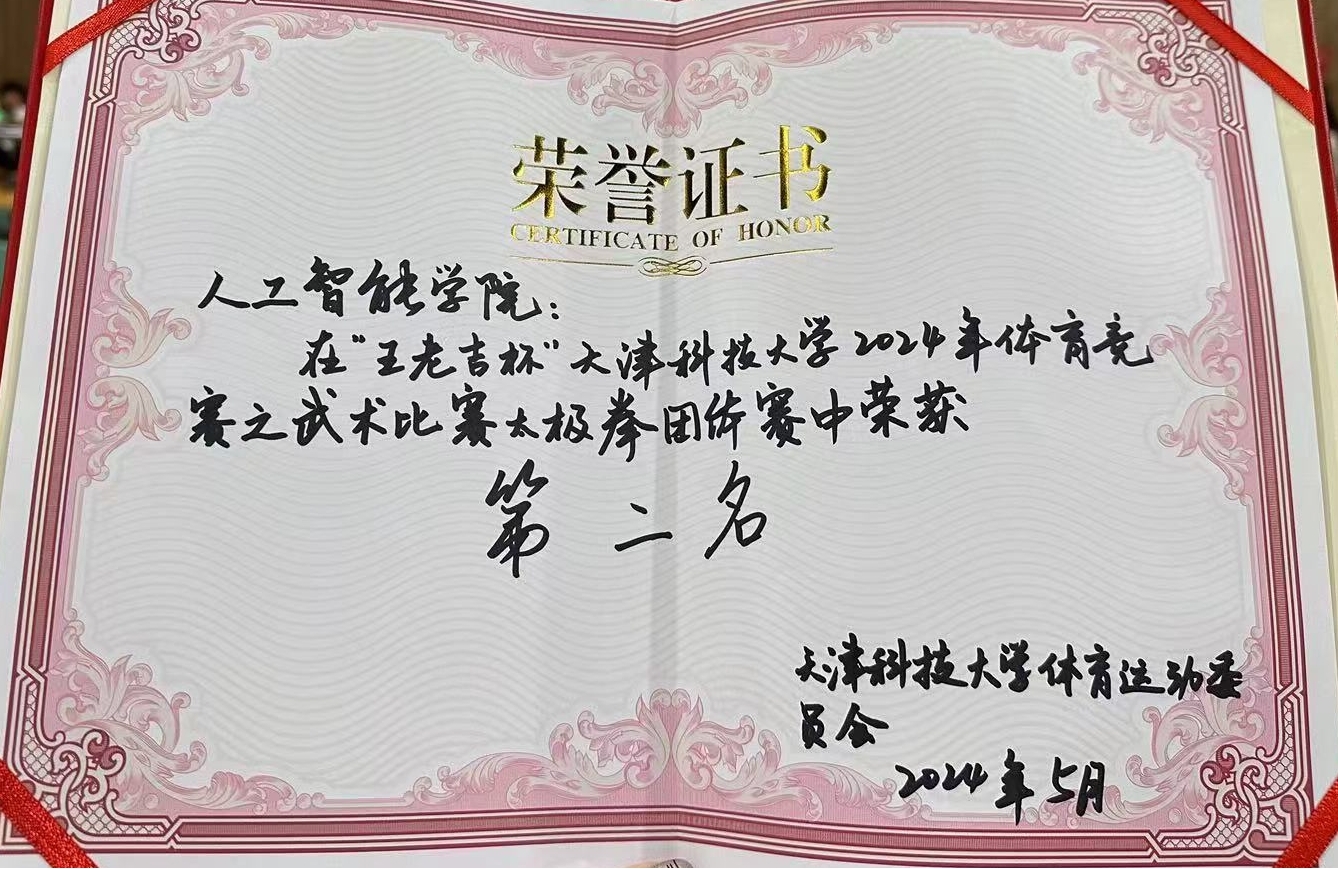 荣誉证书
CERTIFICATE OF HONOR
人工智能学院：
在“王老吉杯”天津科技大学2024年体育竞
赛之武术比赛太极拳团体赛中荣获
第二名
天津科技大学体育运动委
员会
2024年5月